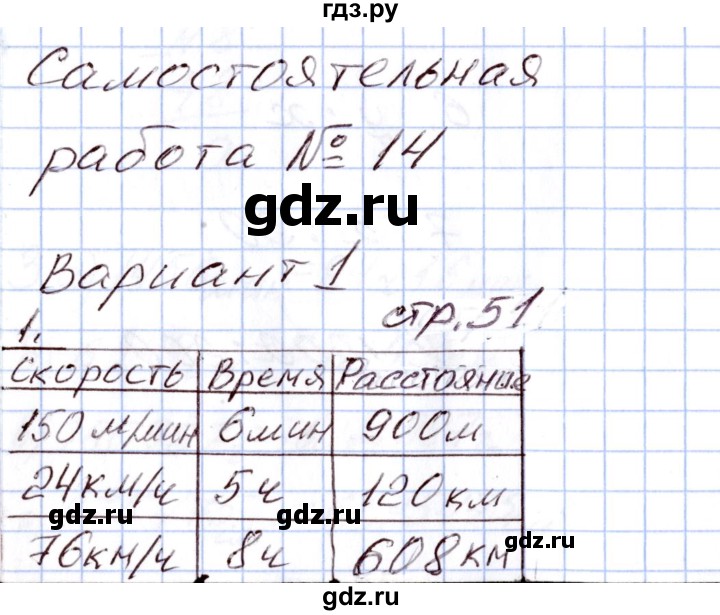 гдз.ру
Самостоятельная
работа № 14
gdz.ru
Вариант 1
стр. 51
1.
Скорость Время Расстояние
150 м/мин 6 мин 900 м
24 км/ч 5 ч 120 км
gdz.ru gdz.ru gdz.ru
76 км/ч 8 ч 608 км
gdz.ru